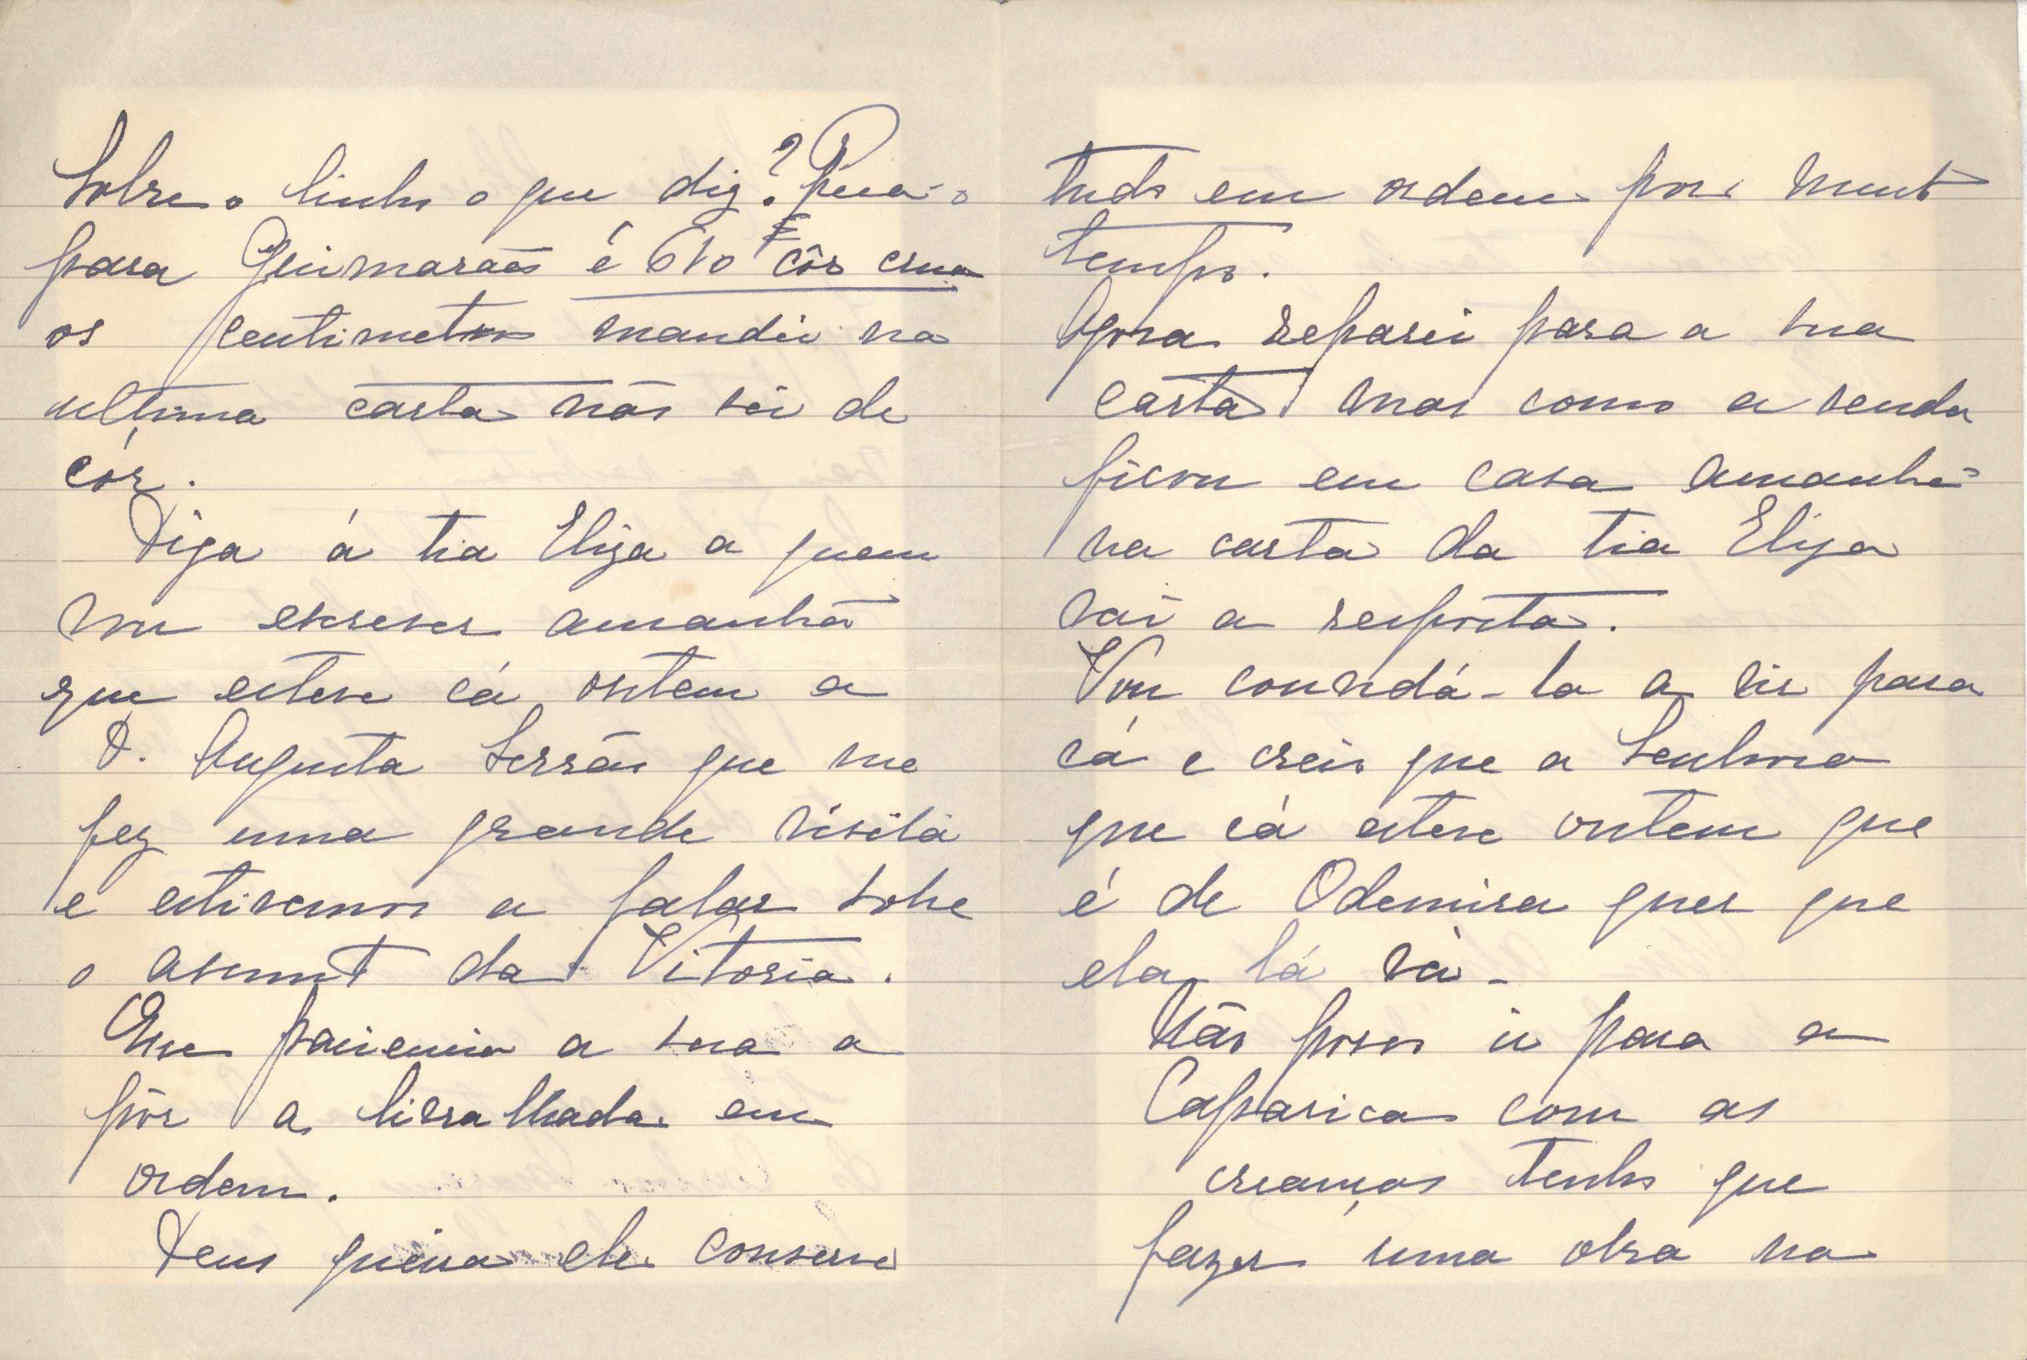 Sobre o linho o que diz?
para Guimarães é 610 côr crua
os centimetros mandei na
ultima carta não sei de
cór.
Diga á tia Eliza a quem
vou escrever amanhã
que esteve cá ontem a
D. Augusta Serrão que me
fez uma grande visita
e estivemos a falar sobre
o assunto da Vitoria.
Que paciencia a sua a
pôr a livralhada em
ordem.
Deus queira ele conserve
tudo em ordem por muito
tempo.
Agora reparei para a sua
carta mas como a renda
ficou em casa amanhã
na carta da tia Eliza
vai a resposta.
Vou convidá-la a vir para
cá e creio que a Senhora
que cá esteve ontem que
é de Odemira quer que
ela lá vá -
Não posso ir para a
Caparica com as
creanças tenho que
fazer uma obra na